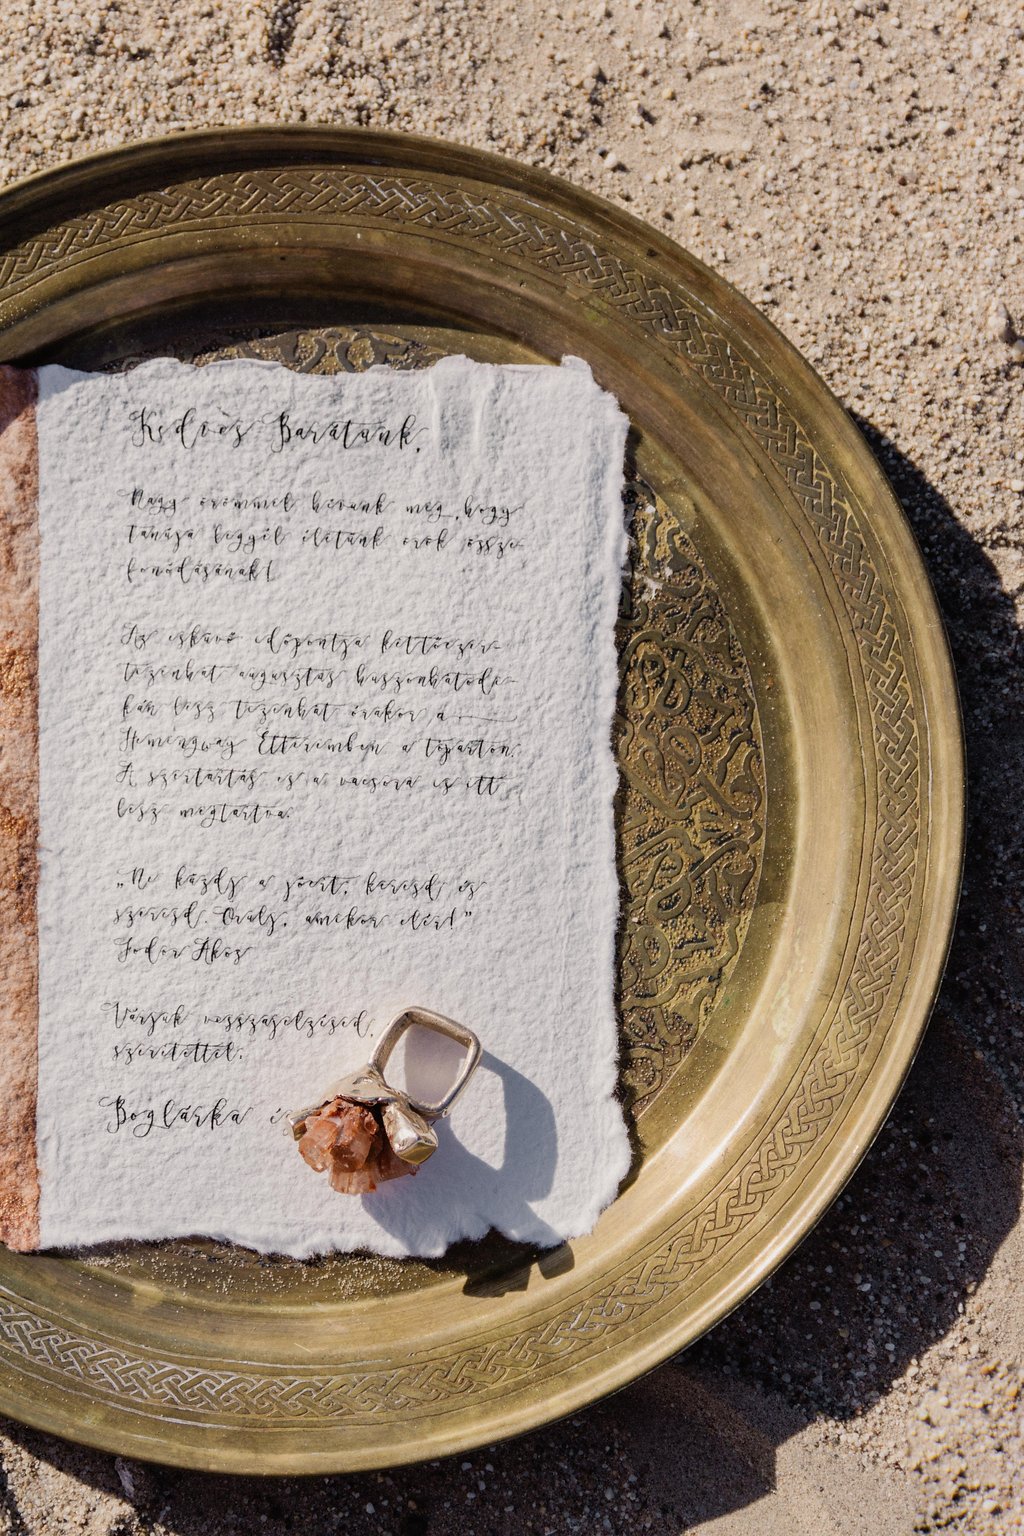 Kedves Barátunk,
Nagy örömmel hívunk meg, hogy
tanúja legyél életünk örök össze-
fonódásának!
Az esküvő időpontja kettőezer-
tizenhat augusztus huszonhatodi-
kán lesz tizenhat órakor, a
Hemingway Étteremben a tóparton.
A szertartás és a vacsora is itt
lesz megtartva.
„Ne küzdj a jóért, keresd, és
szeresd. Örülj, amikor elér!”
Fodor Ákos
Várjuk visszajelzésed,
szeretettel,
Boglárka